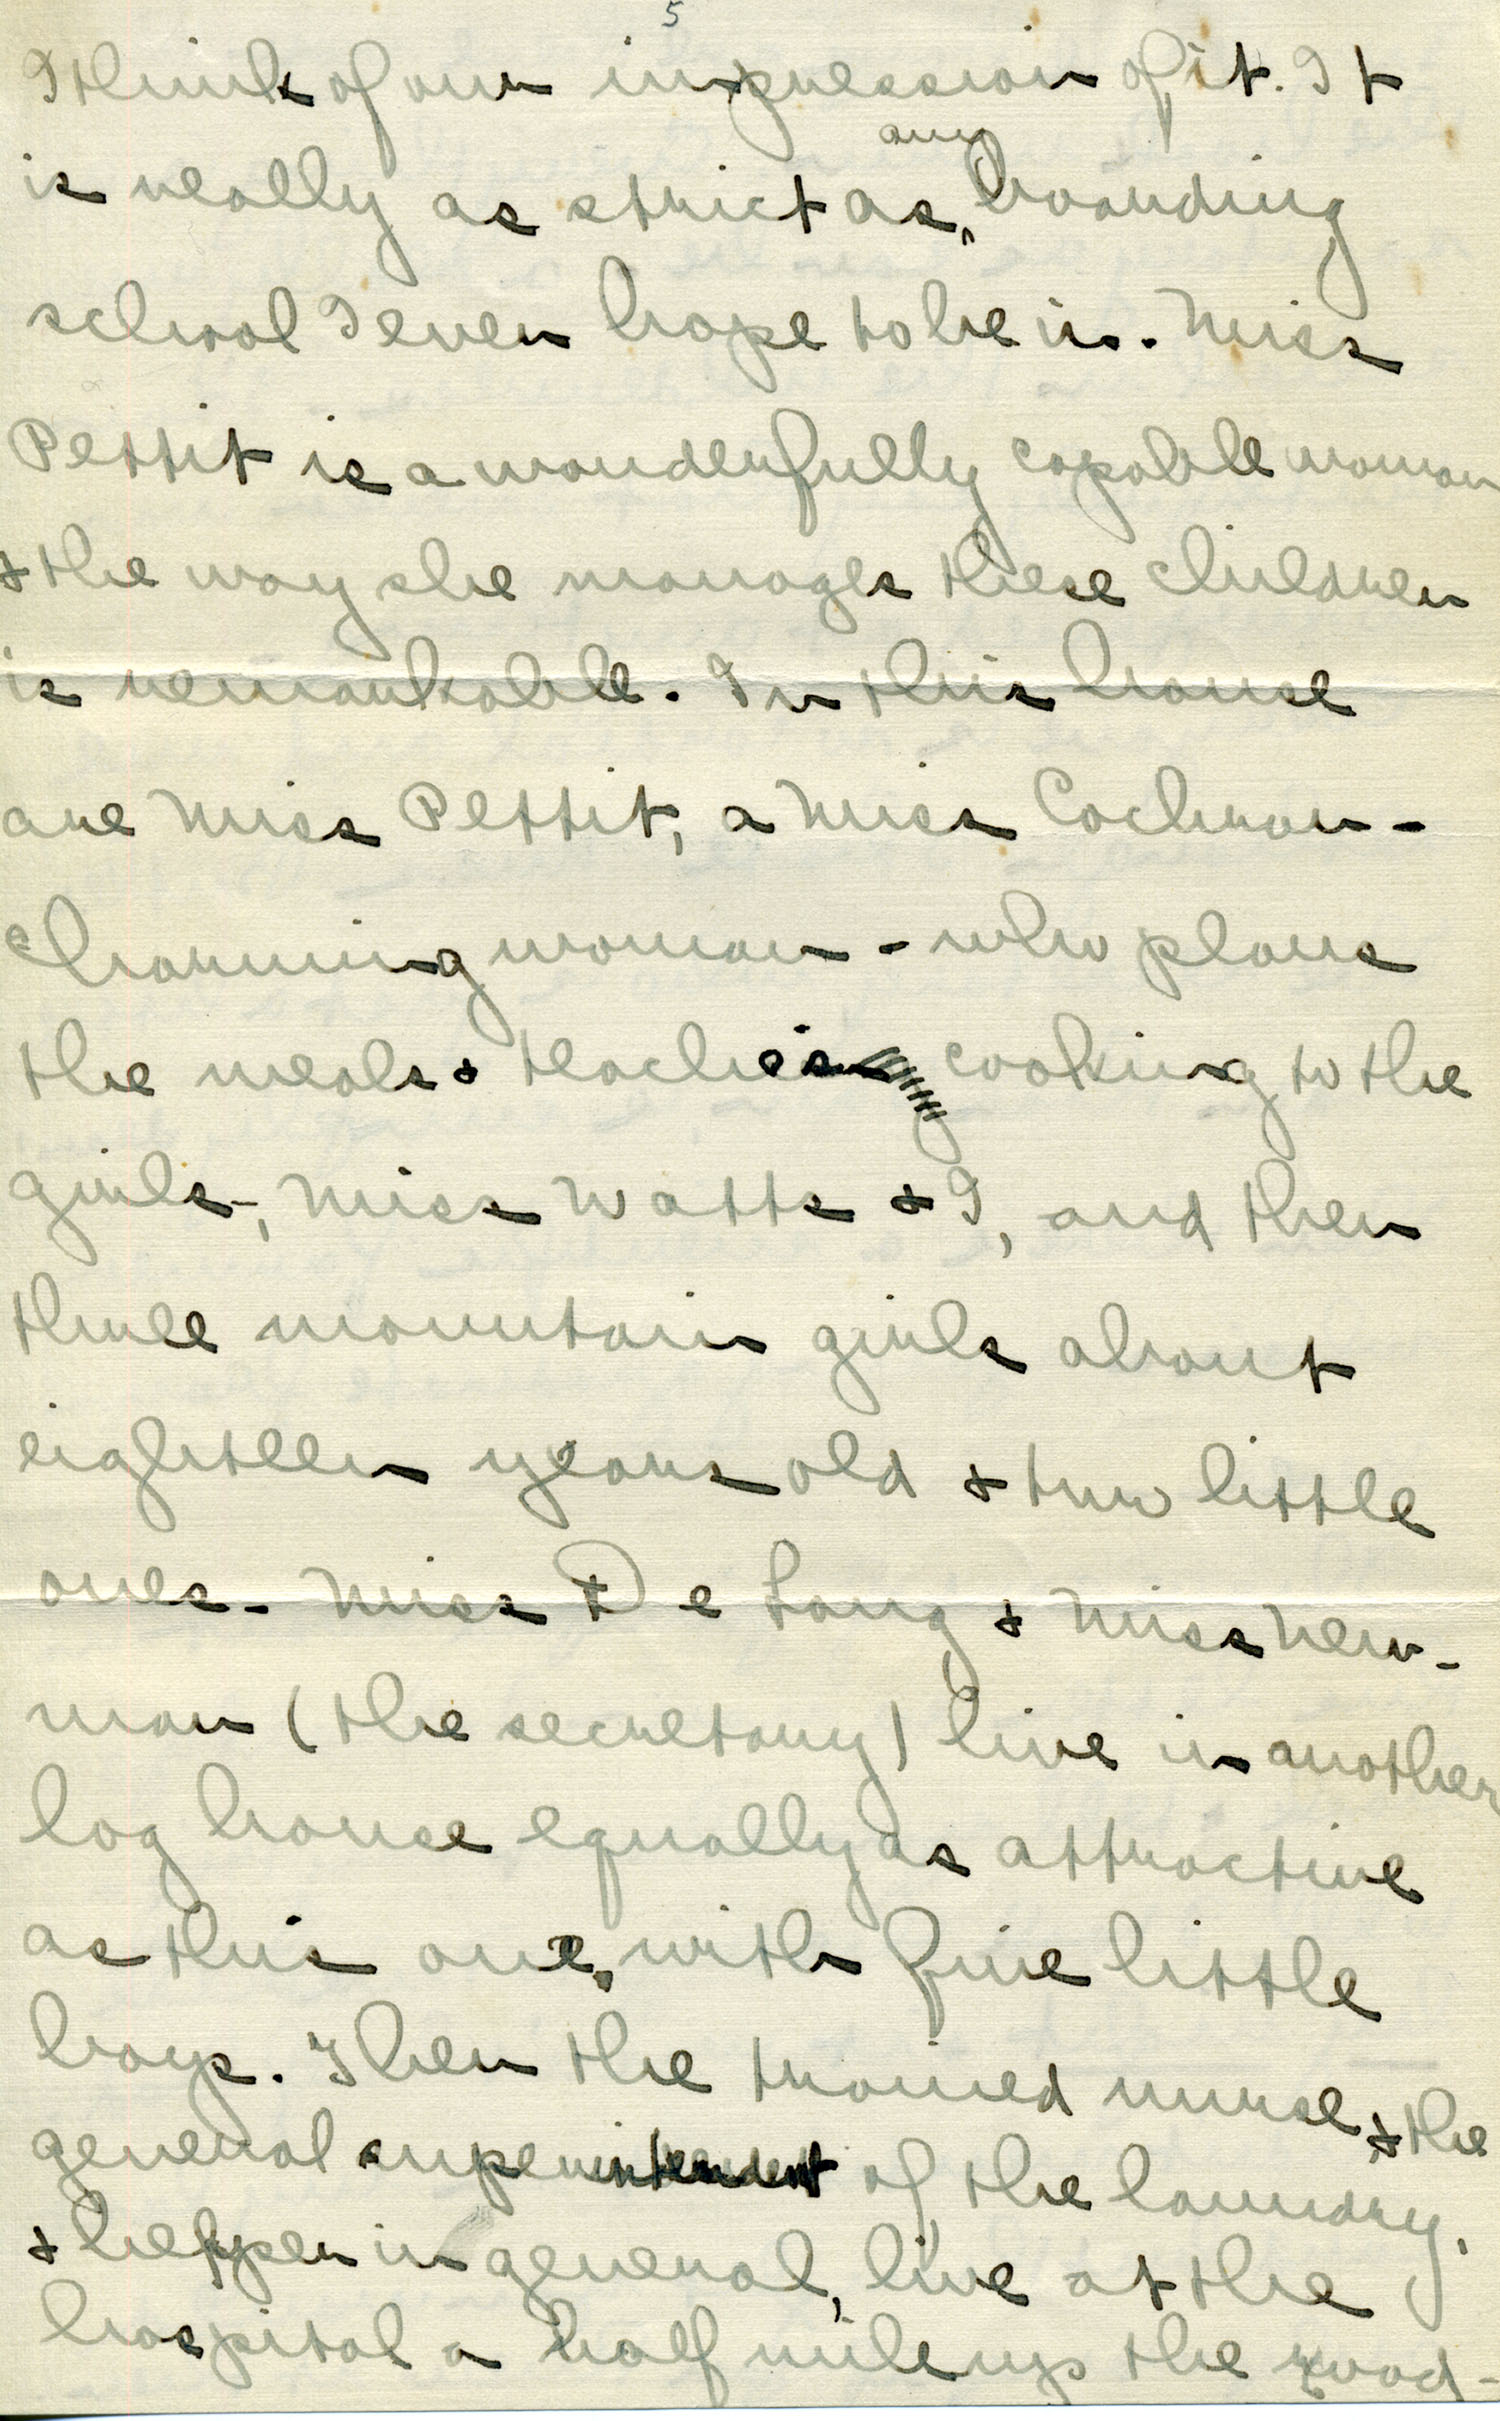 5
I think of our impression of it. It
is really as strict as any boarding
school I ever hope to be in. Miss
Pettit is a wonderfully capable woman
& the way she manages these children
is remarkable. In this house
are Miss Pettit, a Miss Cochran -
charming woman - who plans
the meals & teaches cooking to the
girls -, Miss Watts & I, and then
three mountain girls about
eighteen years old & two little
ones - Miss De Long & Miss New-
man (the secretary) live in another
log house equally as attractive
as this one, with five little
boys. Then the trained nurse & the
general superintendent of the laundry,
& helper in general, live at the
hospital a half mile up the road -